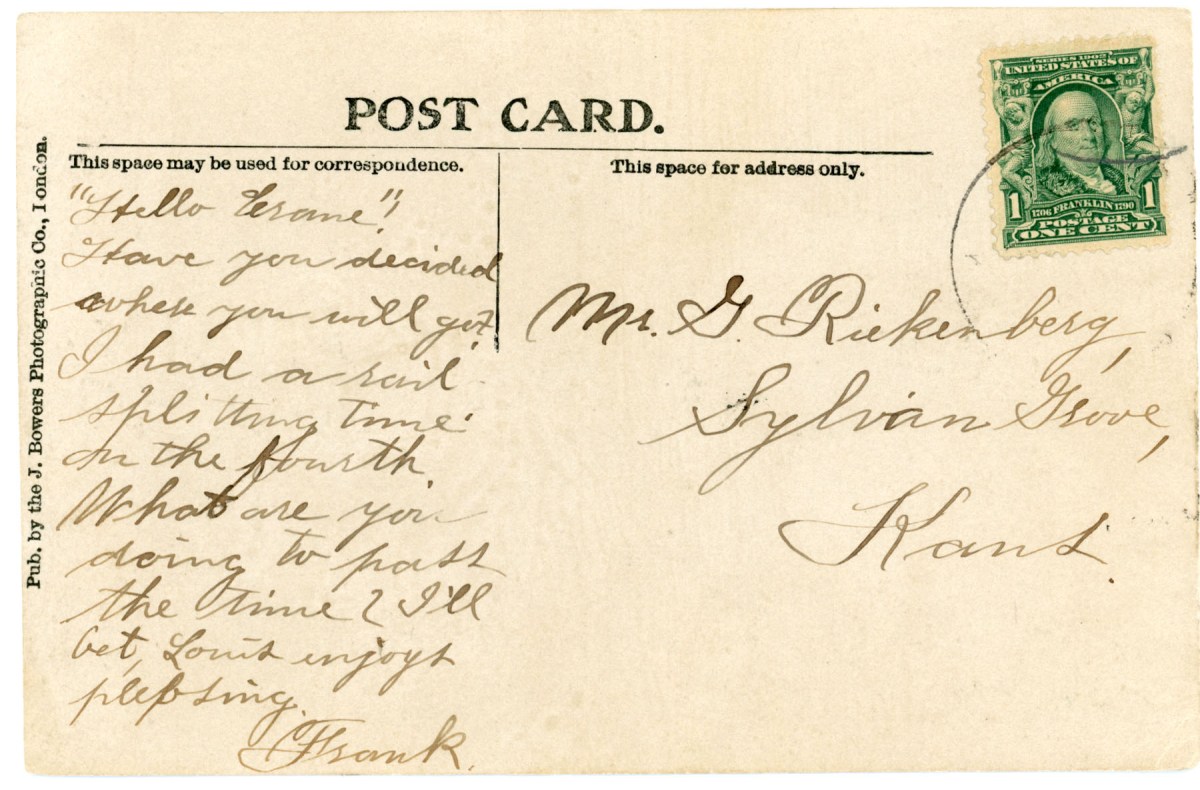 POST CARD.
This space may be used for correspondence.
This space for address only.
Pub. by the J. Bowers Photographic Co., London.
SERIES 1902
UNITED STATES OF
AMERICA
1 1706 FRANKLIN 1790 1
POSTAGE
ONE CENT
"Hello !"
Have you decided
where you will go?
I had a rail
splitting time
on the fourth
What are you
doing to pass
the time? I'll
bet, Louis enjoys
Frank.
Mr. G. Riekenberg,
Sylvan Grove,
Kans.